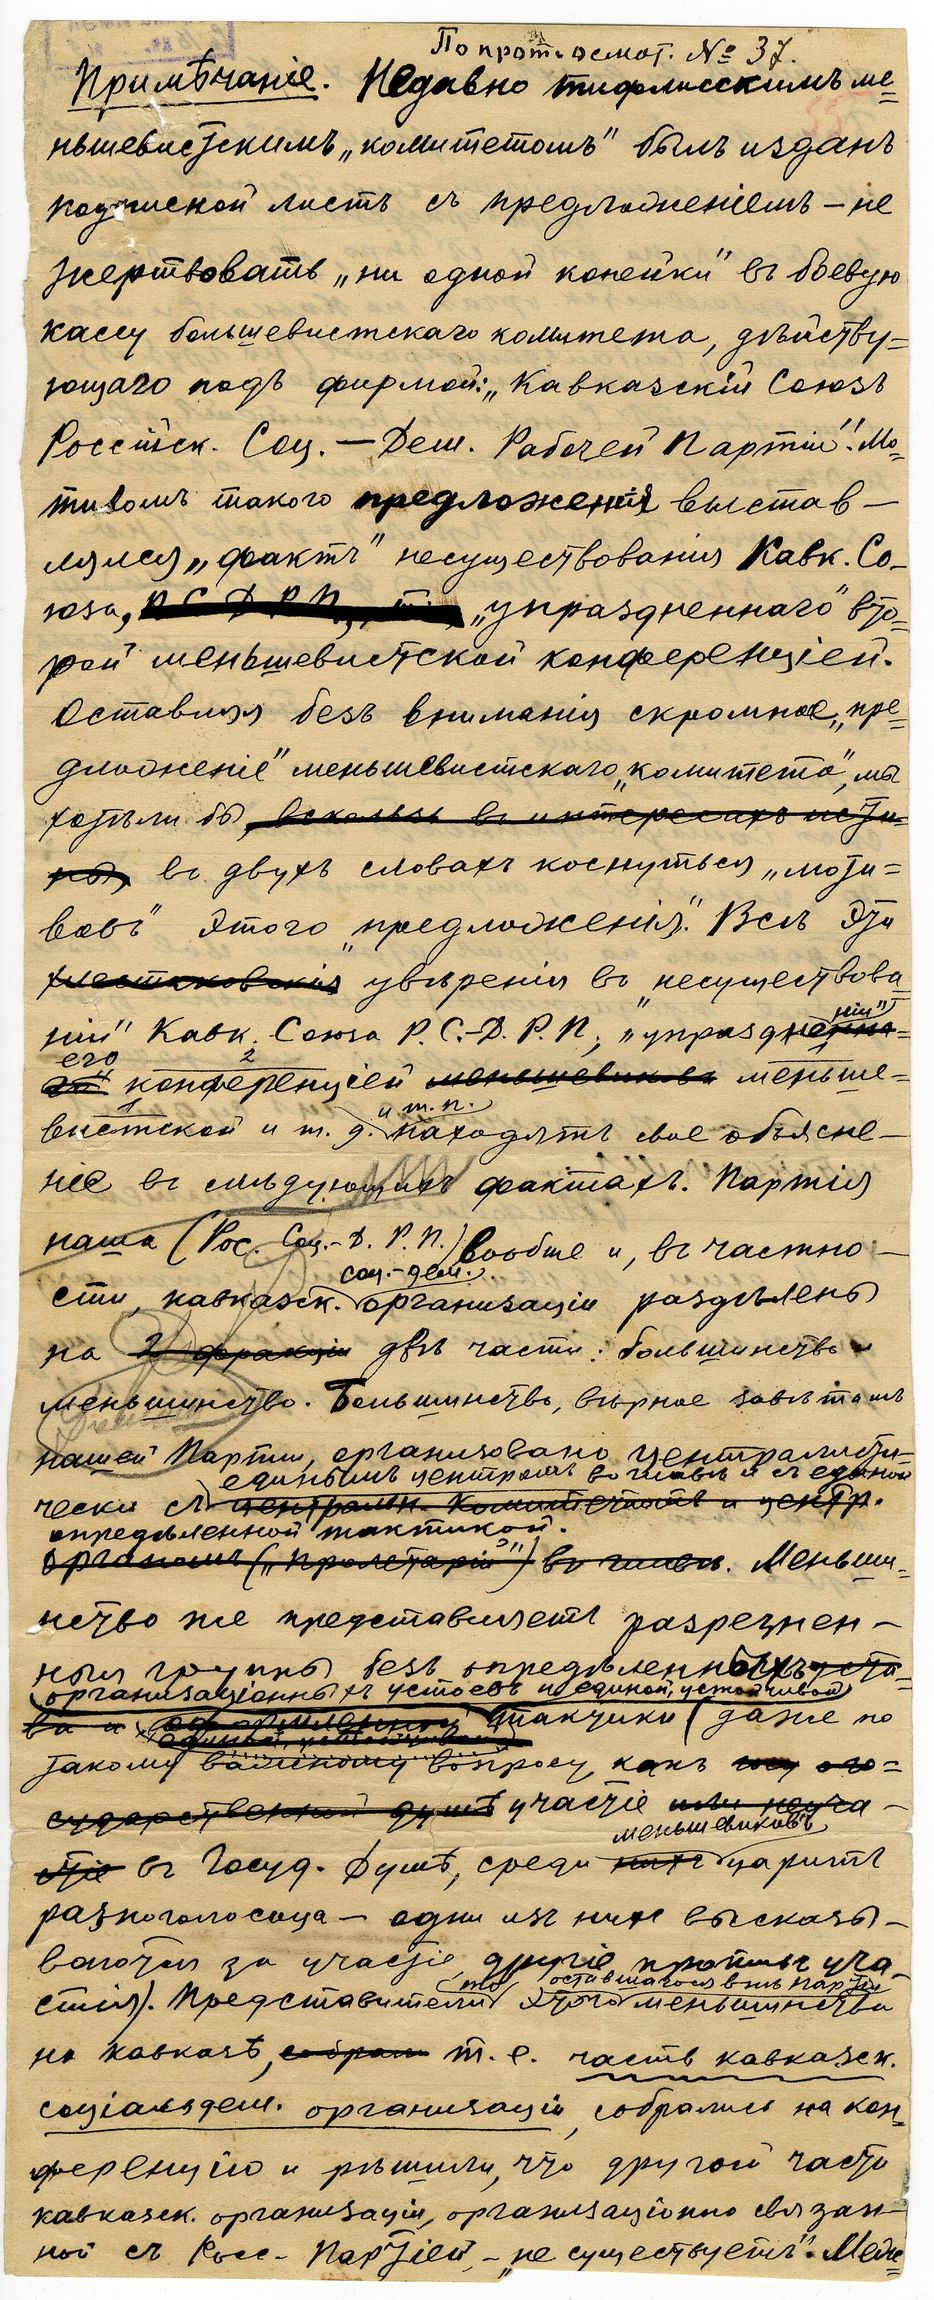 По прот. осмот. № 37.
Примѣчаніе. Недавно тифлисскимъ ме=
ньшевистскимъ „комитетомъ" былъ изданъ
подписной листъ съ предложеніемъ – не
жертвовать „ни одной копейки" въ боевую
кассу большевистскаго комитета, дѣйству=
ющаго подъ фирмой: „Кавказскій Союзъ
Россійск. Соц. – Дем. Рабочей Партіи". Мо-
тивомъ такого предложенія выстав –
лялся „фактъ" несуществованія Кавк. Со-
юза, Р.С.Д.Р.П., „упраздненнаго" вто-
рой меньшевистской конференціей.
Оставляя безъ вниманія скромное „пре=
дложеніе" меньшевистскаго „комитета", мы
хотѣли бы, вскользь въ интересахъ исти=
ны, въ двухъ словахъ коснуться „моти=
вовъ" этого „предложенія". Всѣ эти
хлестаковскія увѣренія въ „несуществова-
ніи" Кавк. Союза Р.С.-Д.Р.П., „упраздненно=
ніи"
его 2
конференціей меньшевиковъ меньше=
1 и т. п.
вистской и т. д. находятъ свое объясне –
ніе въ слѣдующихъ фактахъ. Партія
наша (Рос. Соц.-Д. Р. П.) вообще и, въ частно –
соц.-дем.
сти, кавказск. организаціи раздѣлены
на 2 фракціи двѣ части: большинство и
меньшинство. Большинство, вѣрное завѣтамъ
нашей Партіи, организовано централисти-
единымъ центромъ во главѣ и съ единой
чески съ централн. Комитетомъ и центр.
опредѣленной тактикой.
органомъ („Пролетарій") во главѣ. Меньши=
нство же представляетъ разрознен –
ныя группы безъ опредѣленныхъ уста-
организаціонныхъ устоевъ и единой, устойчивой
ва и тактики (даже по
такому важному вопросу, какъ го=
сударственной думѣ участіе или неуча –
меньшевиковъ
стіе въ Госуд. Думѣ, среди нихъ царитъ
разноголосица – одни изъ нихъ высказы –
ваются за участіе, другіе противъ уча-
оставшагося внѣ Партіи
стія). Представители этого меньшинства
на Кавказѣ, собрали т. е. часть кавказск.
соціальдем. организаціи, собрались на кон-
ференцію и рѣшили, что другой части
кавказск. организаціи, организаціонно связан –
ной съ Росс. Партіей, – „не существуетъ". Меж=